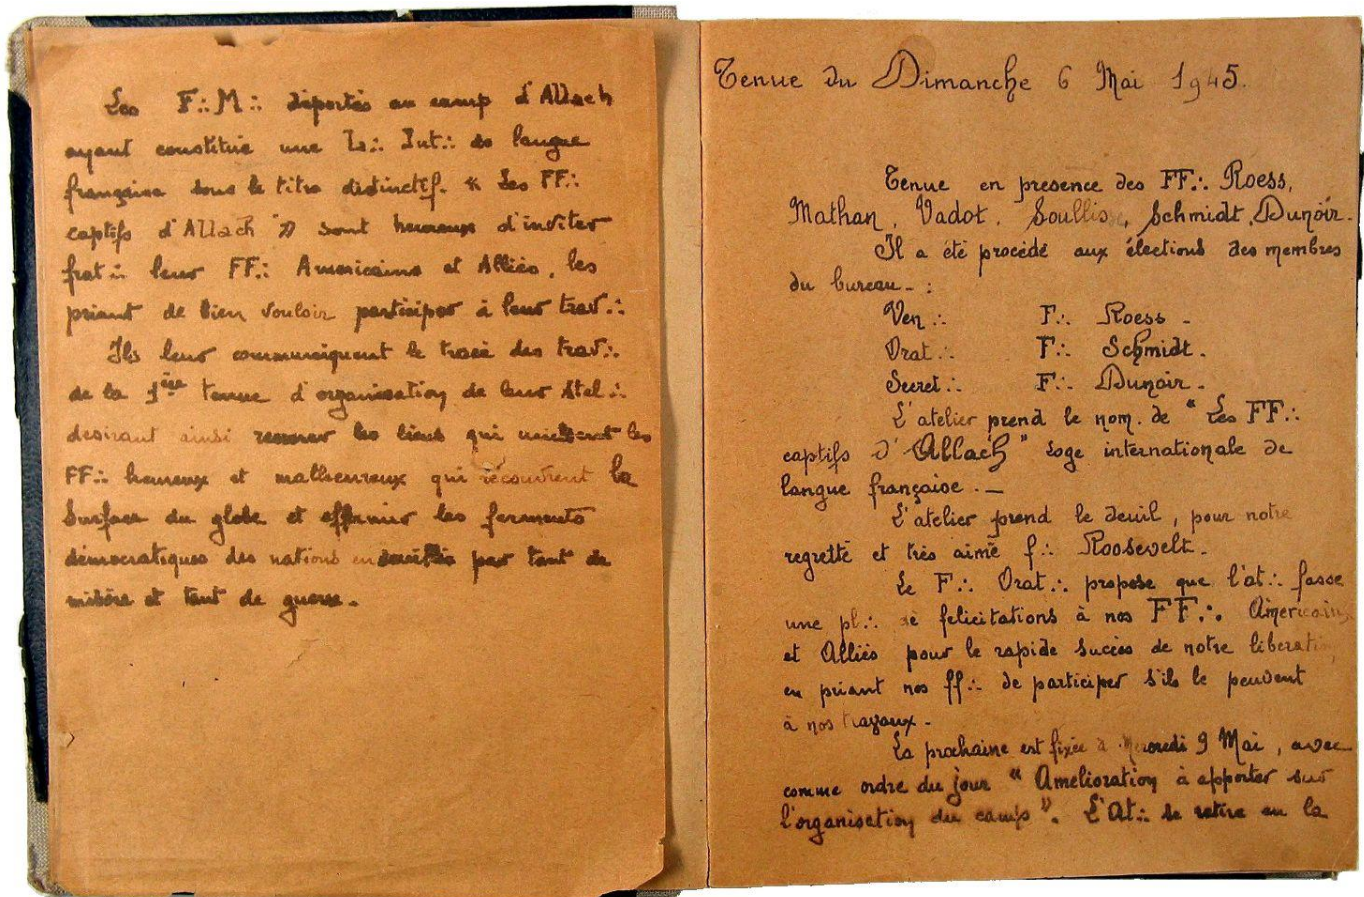 Les F∴M∴ déportés au camp d'Allach
ayant constitué une L∴ Int∴ de langue
française sous le titre distinctif. « Les FF∴
captifs d'Allach » sont heureux d'inviter
frat∴ leur FF∴ Americains et Alliés, les
priant de bien vouloir participer à leur trav∴
Ils leur communiquent le tracé des trav∴
de la 1ère tenue d'organisation de leur Atel∴
desirant ainsi renouer les liens qui les
FF∴ heureux et malheureux qui recouvrent la
surface du globe et affermir les ferments
démocratiques des nations par tant de
misère et tant de guerre.
Tenue du Dimanche 6 Mai 1945.
Tenue en presence des FF∴ Roess,
Mathan, Vadot, Schmidt, Dunoir.
Il a été procédé aux élections des membres
du bureau - :
Ven∴ F∴ Roess -
Orat∴ F∴ Schmidt.
Secret∴ F∴ Dunoir.
L'atelier prend le nom. de " Les FF∴
captifs d'Allach " Loge internationale de
langue française. —
L'atelier prend le deuil, pour notre
regretté et très aimé f∴ Roosevelt.
Le F∴ Orat∴ propose que l'at∴ fasse
une pl∴ de felicitations à nos FF∴ Américains
et Alliés pour le rapide succès de notre liberation
en priant nos ff∴ de participer s'ils le peuvent
à nos travaux.
La prochaine est fixée à Mercredi 9 Mai, avec
comme ordre du jour " Amelioration à apporter sur
l'organisation du camp ". L'At∴ se retire en la